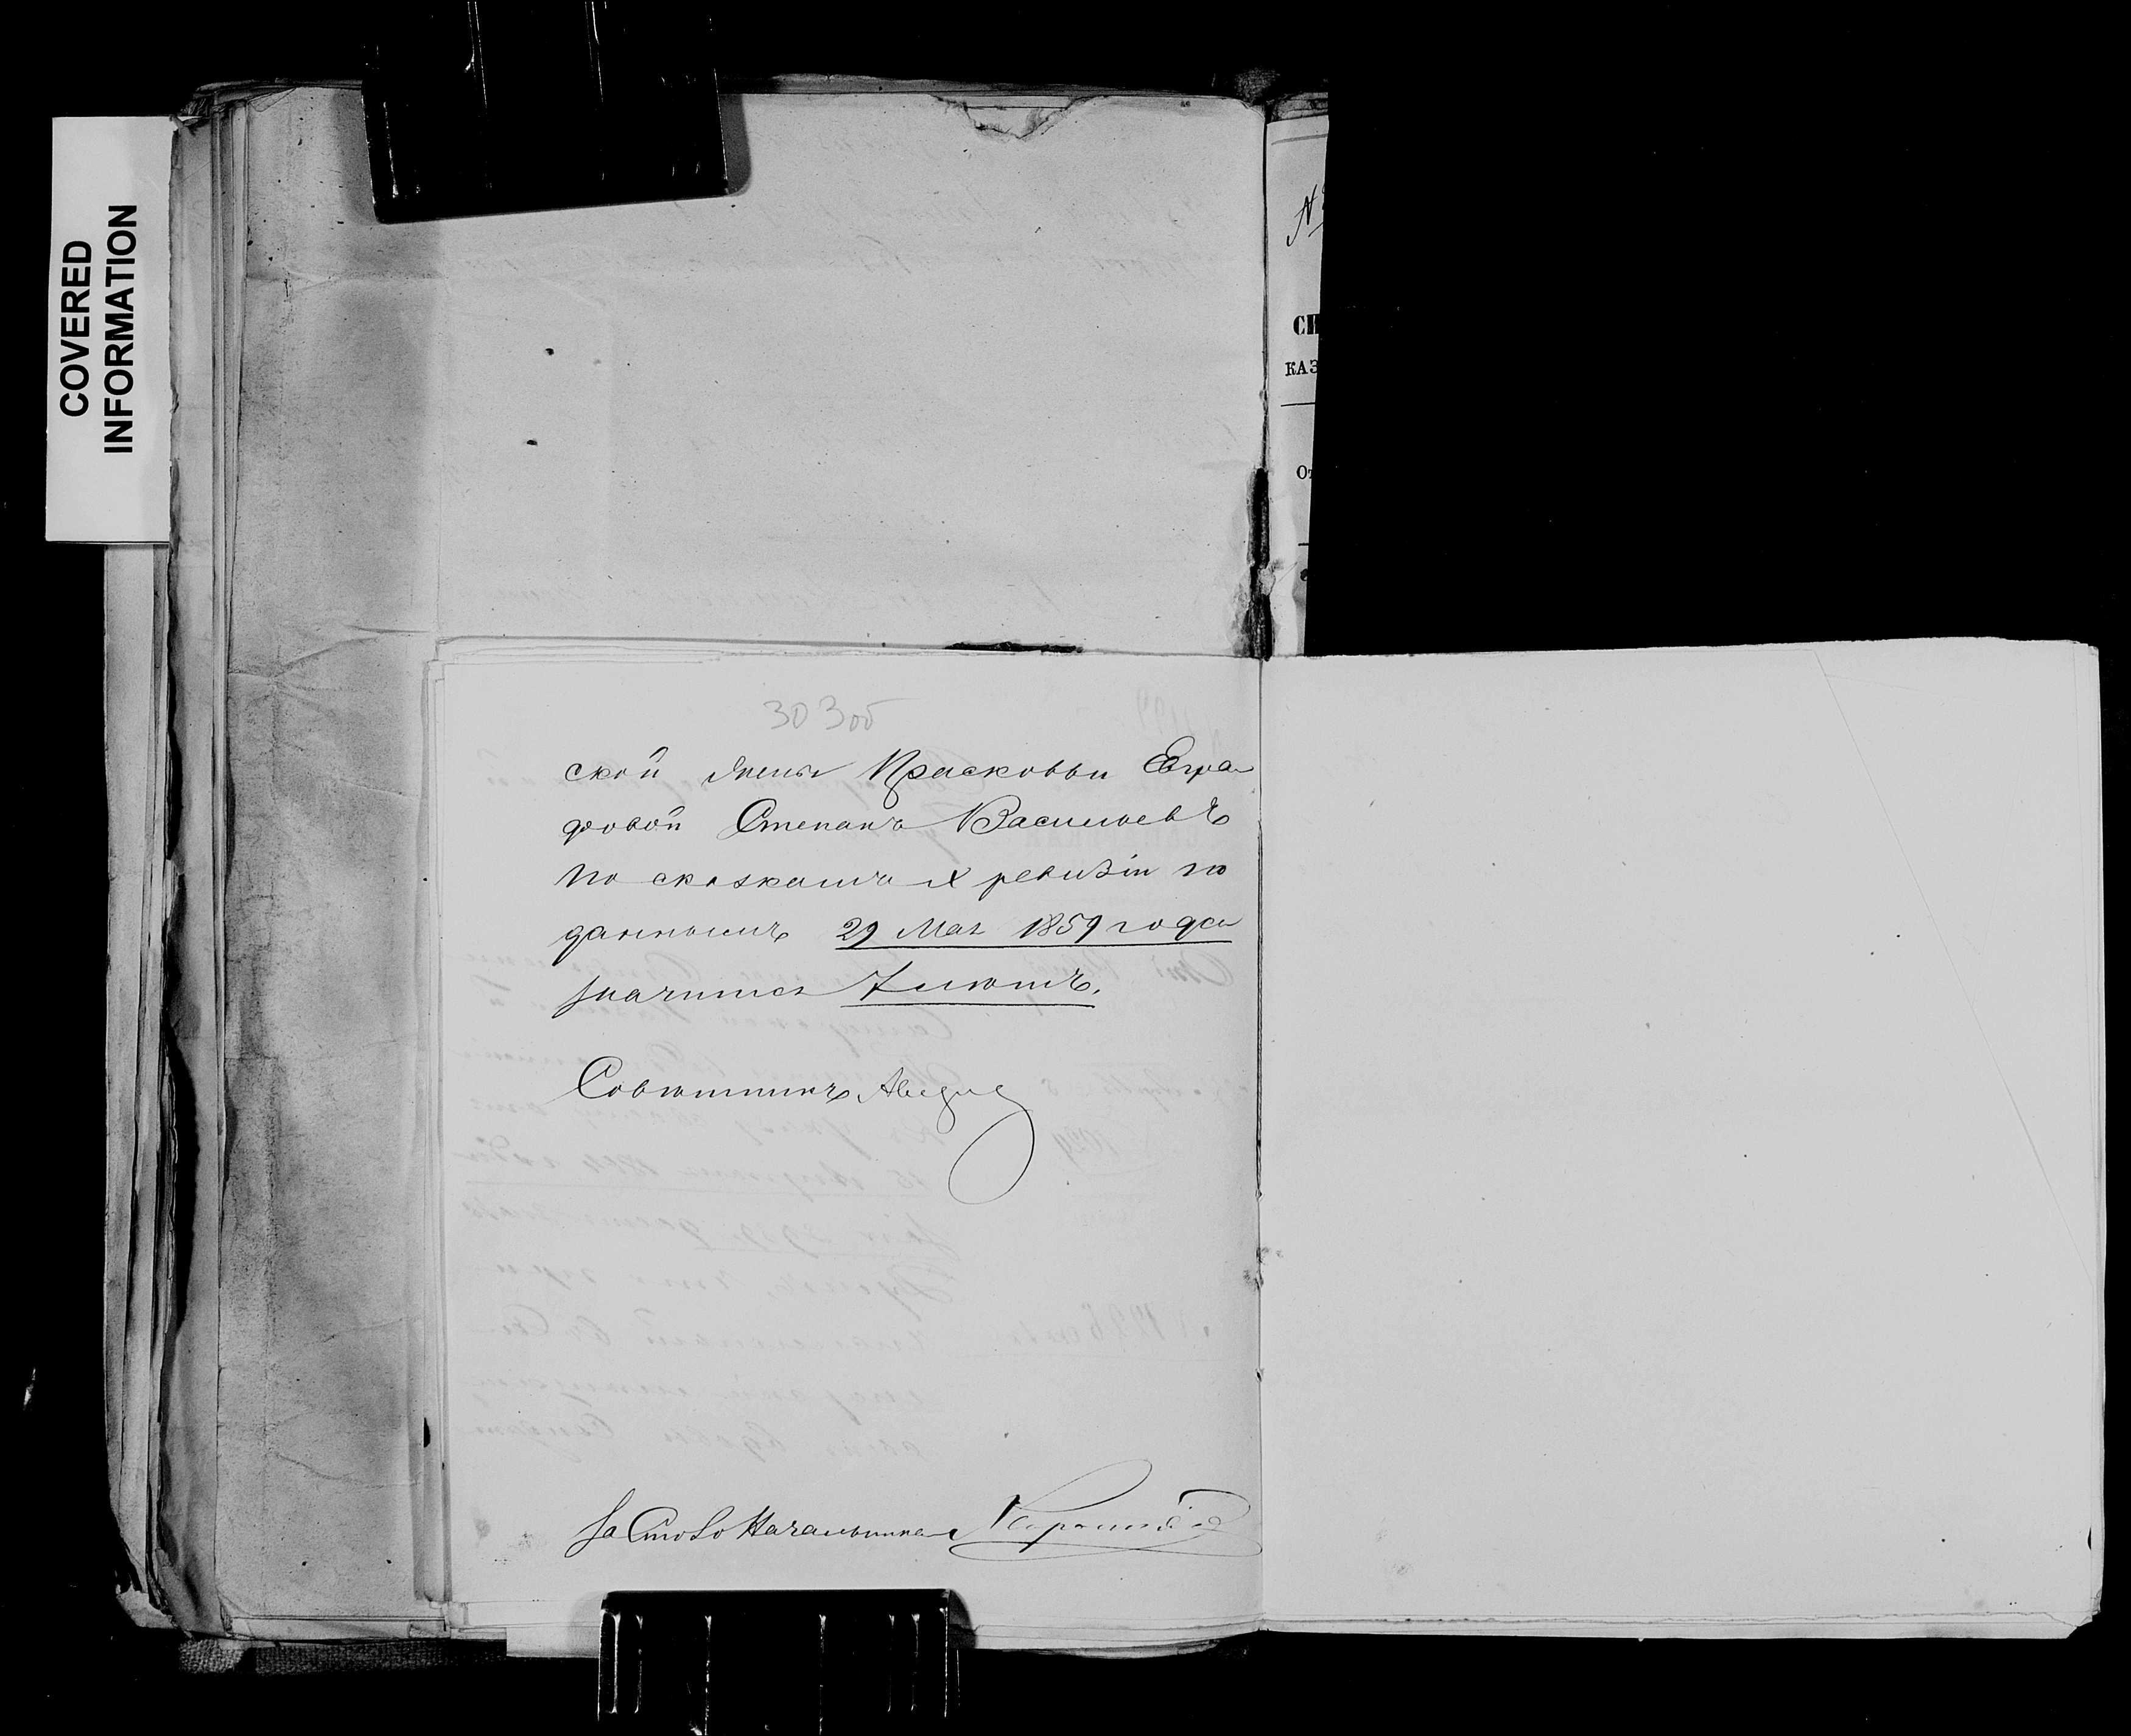 COVERED
INFORMATION
№
СИ
КАЗ
От
303об
ской жены Прасковьи Евгра
фовой Степанъ Васильевъ
по сказкамъ X ревизіи по
даннымъ 29 Мая 1859 года
значится 7 лѣтъ.
Совѣтникъ
За Столоначальника